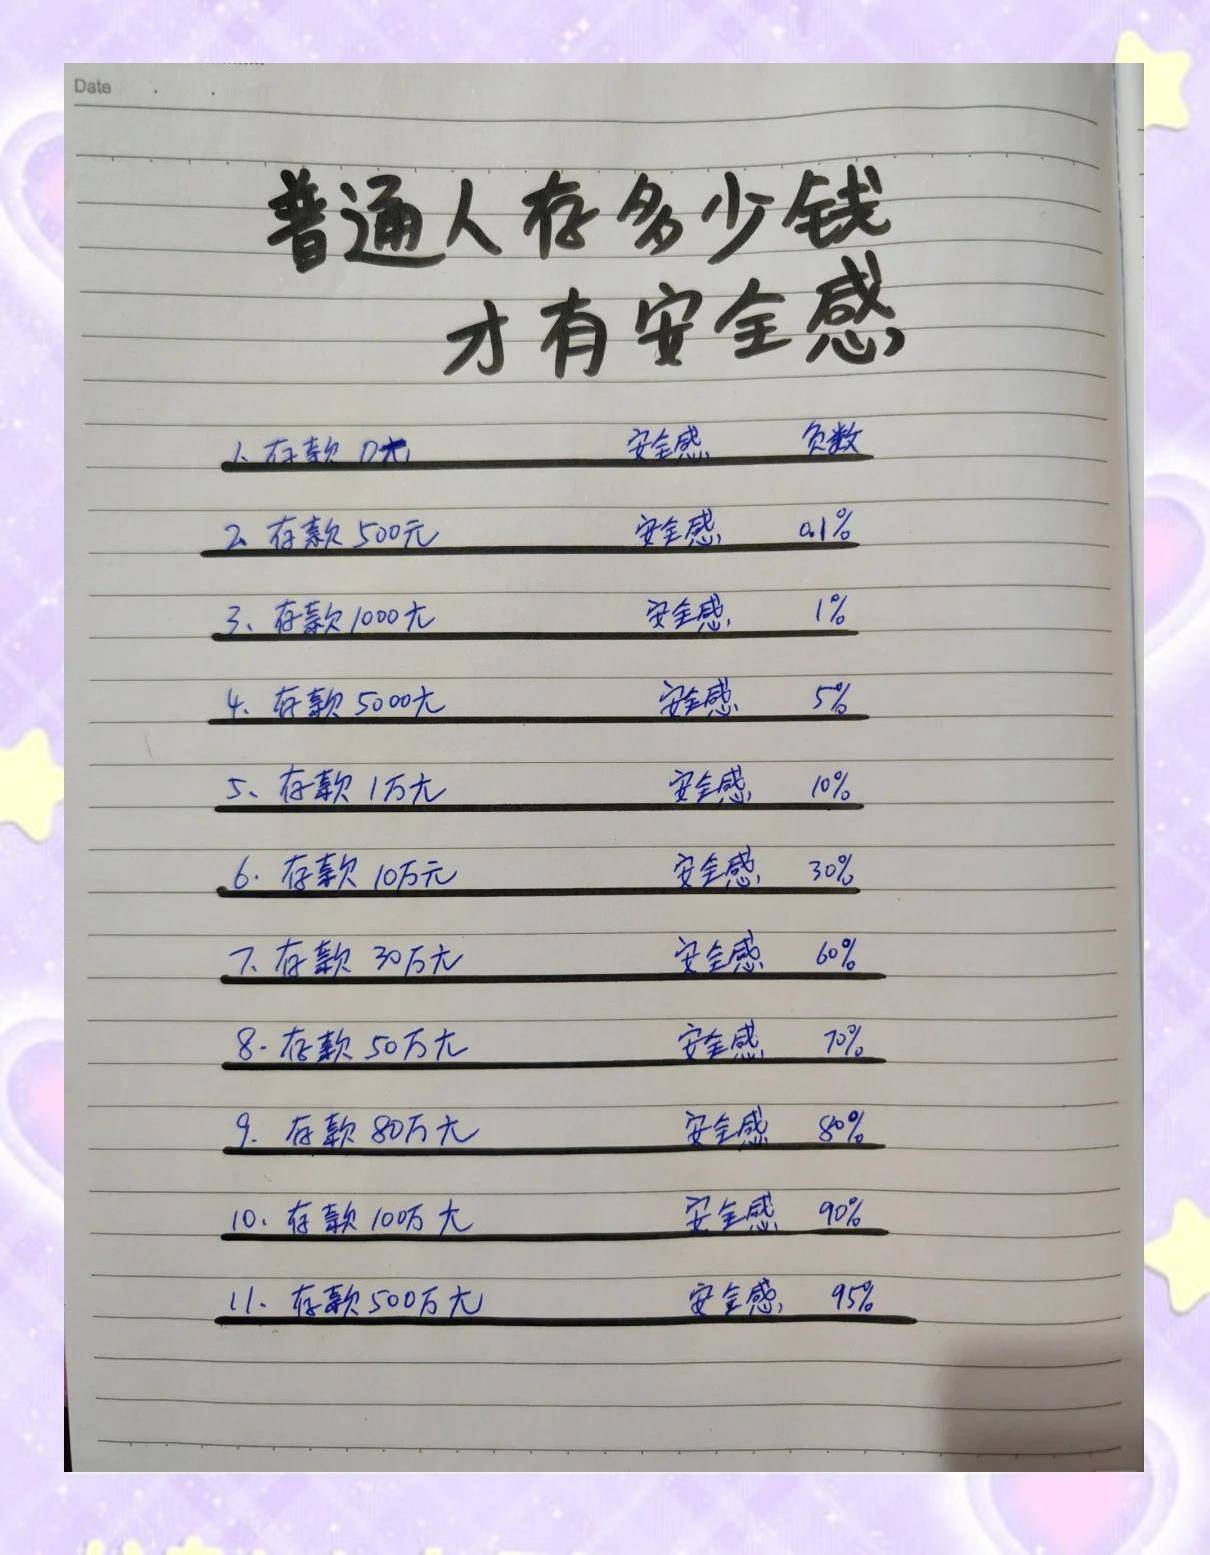 Date
普通人存多少钱
才有安全感
1、存款 0元 安全感 负数
2、存款 500元 安全感 0.1%
3、存款 1000元 安全感 1%
4、存款 5000元 安全感 5%
5、存款 1万元 安全感 10%
6.存款 10万元 安全感 30%
7、存款 30万元 安全感 60%
8.存款 50万元 安全感 70%
9.存款 80万元 安全感 80%
10.存款 100万元 安全感 90%
11.存款 500万元 安全感 95%